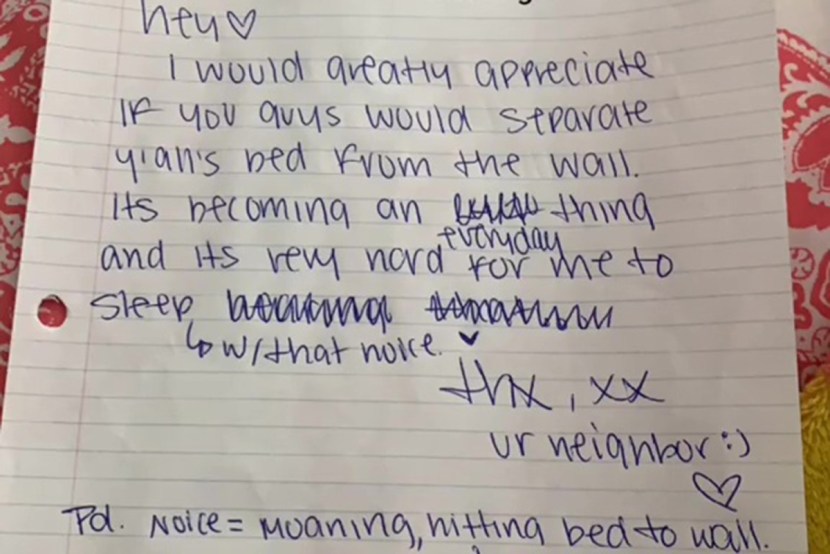 hey♡
I would greatly appreciate
If you guys would separate
y'all's bed from the wall.
Its becoming an thing
everyday
and its very hard for me to
sleep
↳ w/that noice.
thx, xx
ur neighbor :)
♡
Pd. Noice = Moaning, hitting bed to wall.